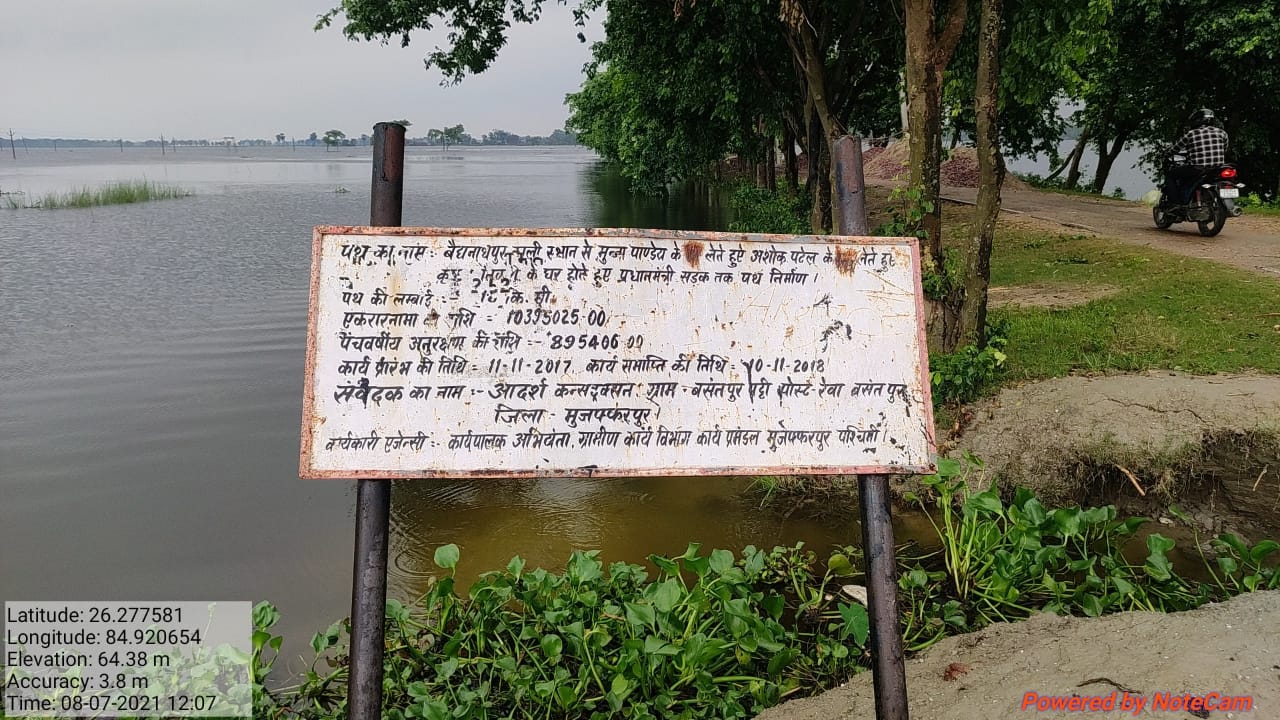 पथ का नाम :- बैद्यनाथपुर स्थान से मुन्ना पाण्डेय के लेते हुऐ अशोक पटेल के
के घर होते हुए प्रधानमंत्री सड़क तक पथ निर्माण।
पथ की लम्बाई :- कि. मी.
एकरारनामा राशि = 10395025.00
पंचवर्षीय अनुरक्षण की राशि :- 895406.00
कार्य प्रारंभ की तिथि :- 11-11-2017 कार्य समाप्ति की तिथि :- 10-11-2018
संवेदक का नाम :- आदर्श कन्सट्रक्सन, ग्राम - बसंतपुर पट्टी पोस्ट- रेवा बसंत पुर
जिला - मुजफ्फरपुर।
कार्यकारी एजेन्सी :- कार्यपालक अभियंता, ग्रामीण कार्य विभाग कार्य प्रमंडल मुजफ्फरपुर पश्चिमी।
Latitude: 26.277581
Longitude: 84.920654
Elevation: 64.38 m
Accuracy: 3.8 m
Time: 08-07-2021 12:07
Powered by NoteCam